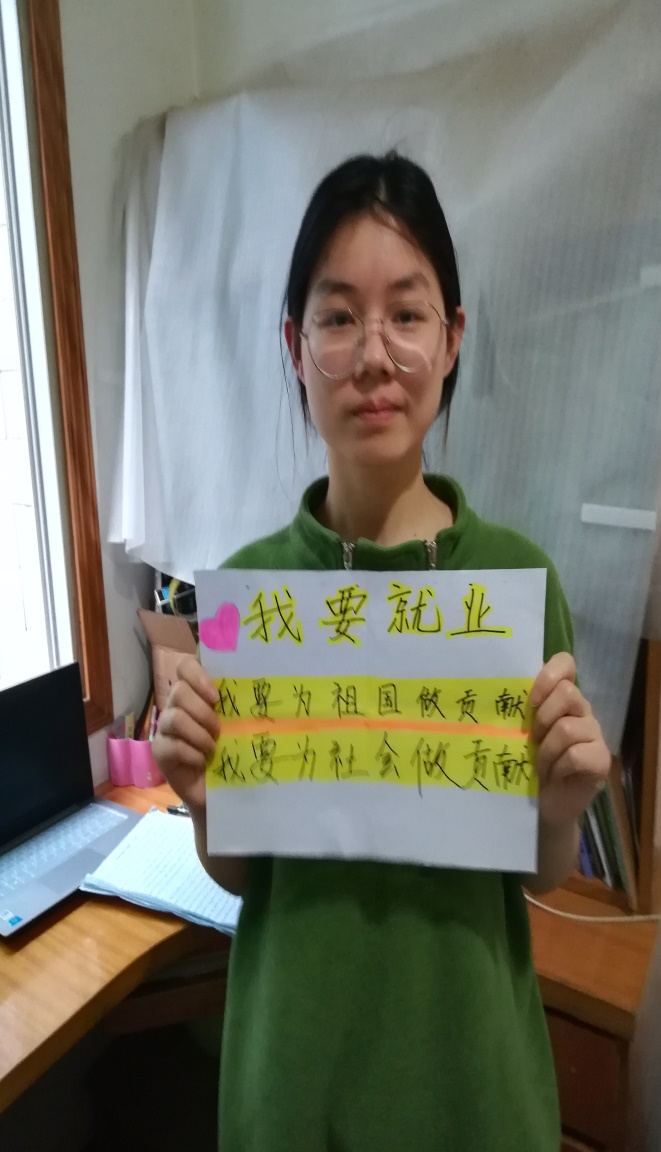 我要就业
我要为祖国做贡献
我要为社会做贡献